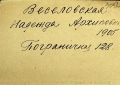 Веселовская
Надежда Архиповна
1905
Пограничн 12а